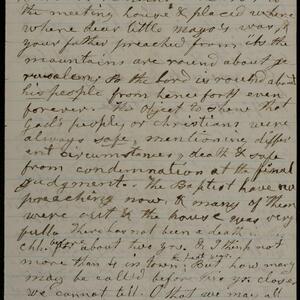 the meeting house & placed where
where dear little Mary's was, &
your father preached from "As the
mountains are round about Je
rusalem, so the Lord is round about
his people from henceforth even
forever. The object to show that
God's people, or christians were
always safe, mentioning differ
ent circumstances, death & safe
from condemnation at the final
Judgment. The Baptist have no
preaching now, & many of them
were out & the house was very
full. There has not been a death in
chh. about two yrs. & I think not
more than in town, the past year. But how many
may be called before this yr. close
we cannot tell. O that we may all